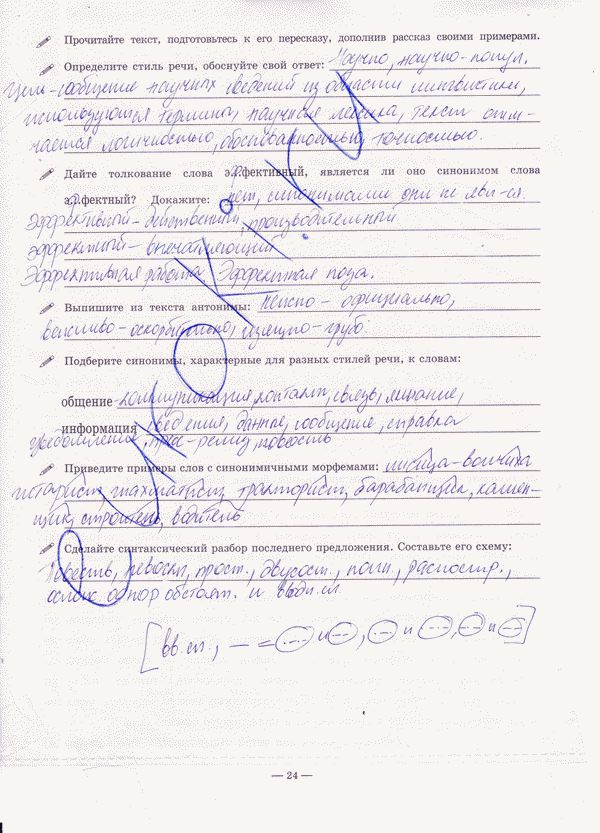 Прочитайте текст, подготовьтесь к его пересказу, дополнив рассказ своими примерами.
Определите стиль речи, обоснуйте свой ответ: Научно, научно-попул.
Цель-сообщение научных сведений из области лингвистики,
используются термины, научная лексика, текст отли-
чается логичностью, обоснованностью, точностью.
Дайте толкование слова эффективный, является ли оно синонимом слова
эффектный? Докажите: нет, синонимами они не явл-ся.
Эффективный - действенный, производительный
эффектный - впечатляющий
Эффективная работа. Эффектная поза.
Выпишите из текста антонимы: неясно - официально,
вежливо - оскорбительно, изящно - грубо.
Подберите синонимы, характерные для разных стилей речи, к словам:
общение - коммуникация, контакт, связь,
информация сведения, данные, сообщение, справка
уведомление, пресс-релиз, повесть
Приведите примеры слов с синонимичными морфемами: лисица - волчиха
гитарист, шахматист, тракторист, барабанщик, камен-
щик, строитель, водитель
Сделайте синтаксический разбор последнего предложения. Составьте его схему:
Повеств., невоскл., прост., двусост., полн., распостр.,
ослож. однор обстоят. и вводн.сл.
[вв.сл., — = и , и , и ]
— 24 —